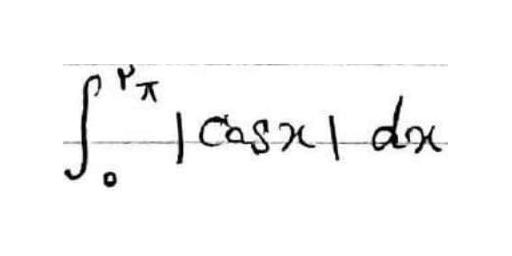 ∫₀^۲π |Cosx| dx